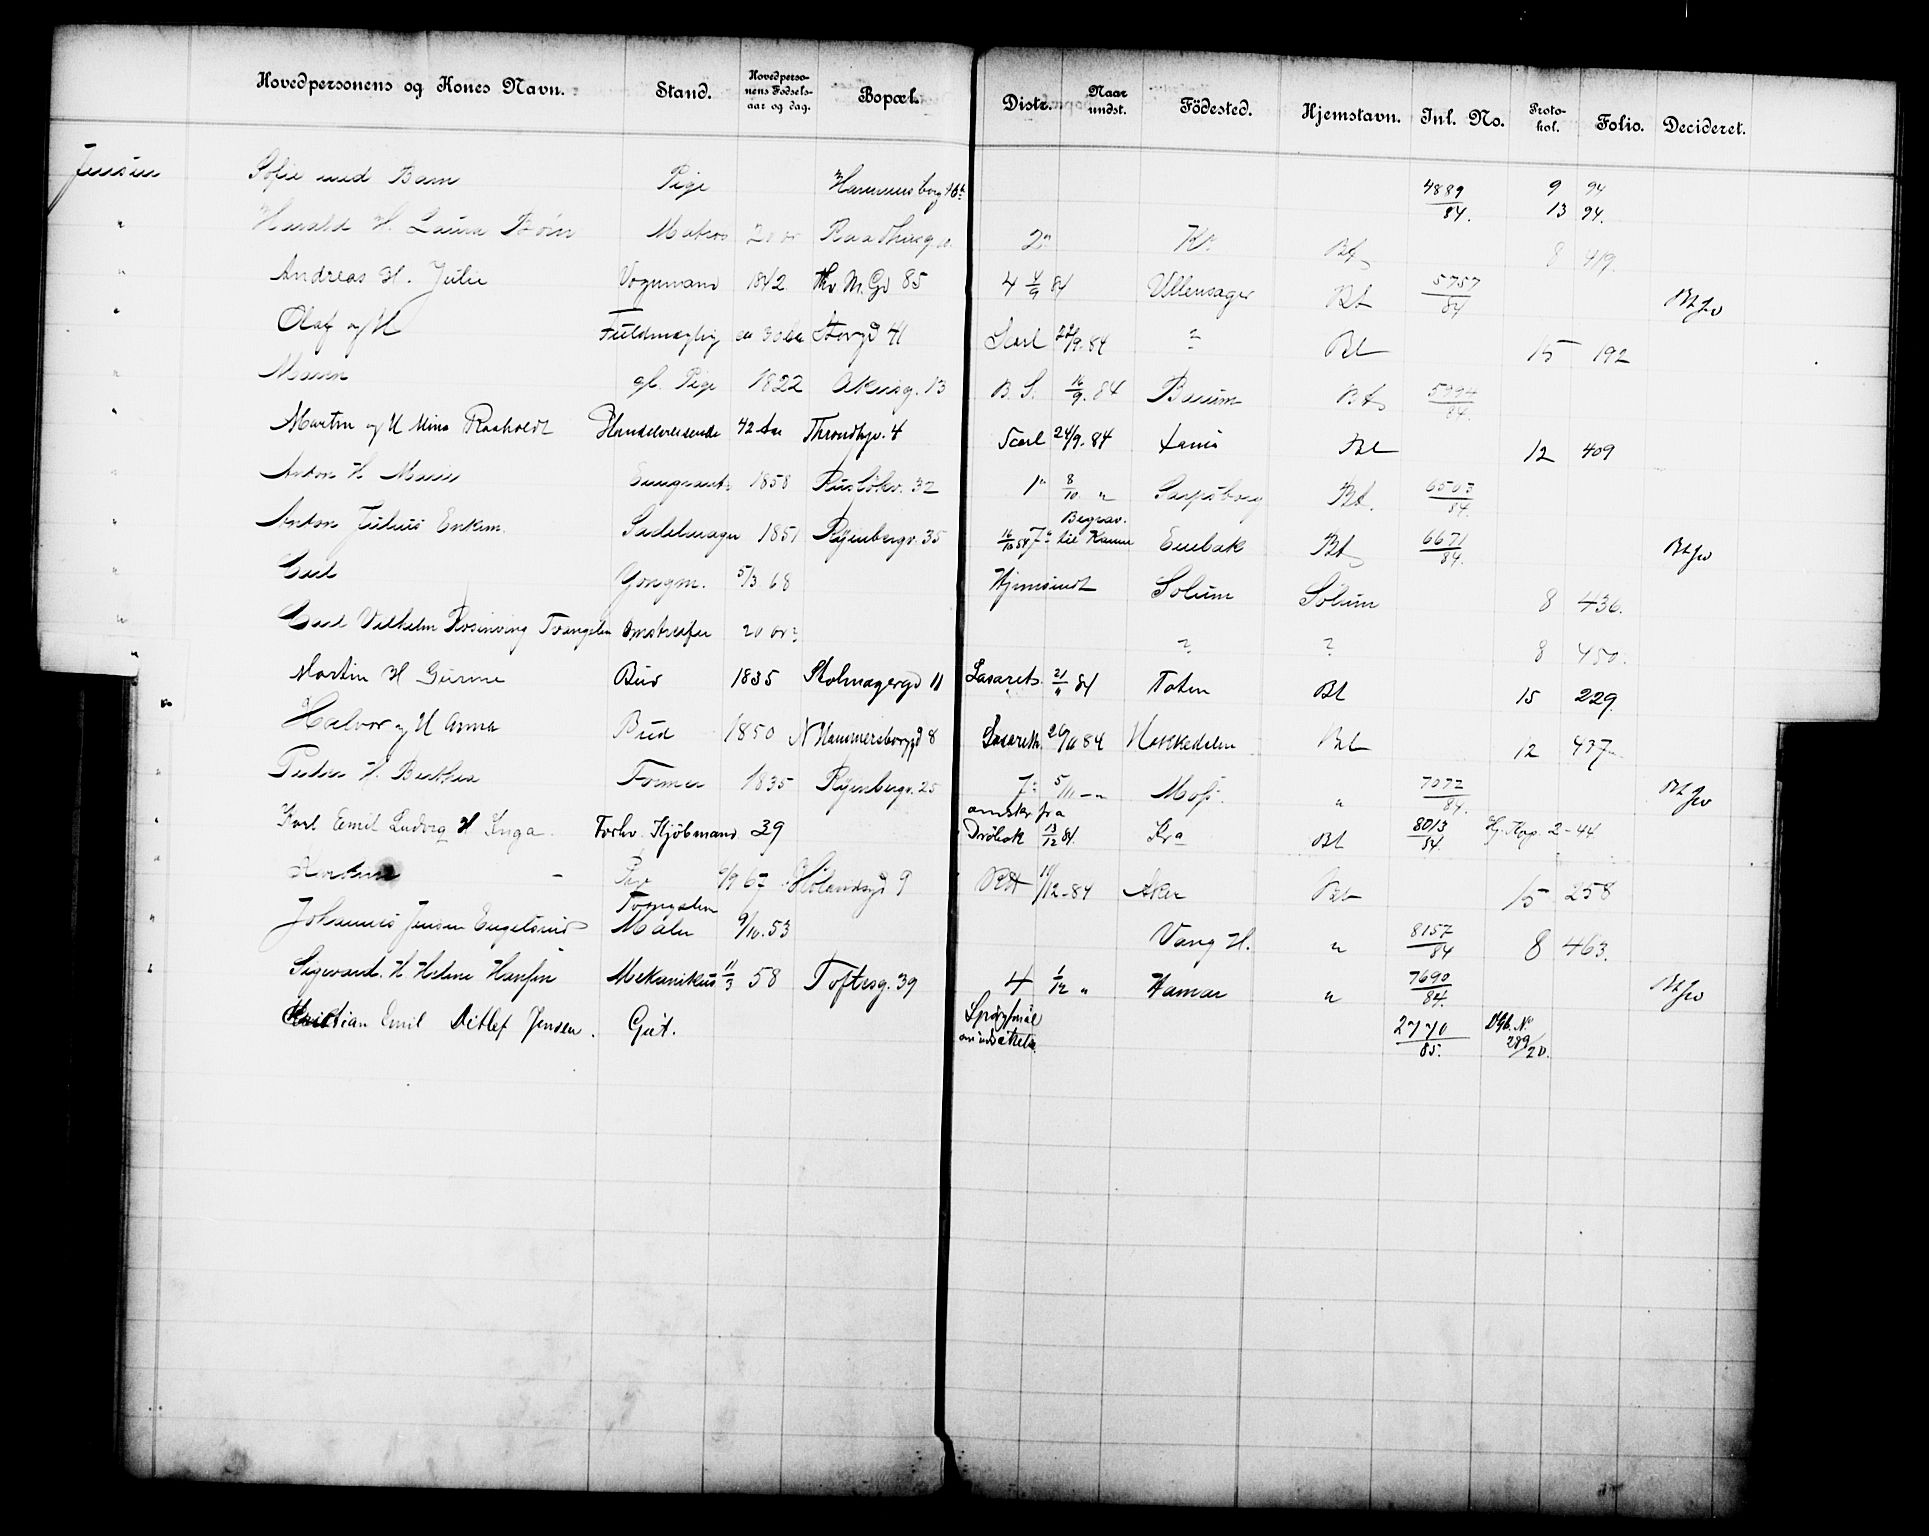 Hovedpersonens og Kones Navn. Stand. Hovedperso- nens Fødsels- aar og dag. Bopæl. Distr. Naar undst. Födested. Hjemstavn. Inl. No. Proto- kol. Folio. Decideret.
Jensen Sofie med Barn Pige Hammersborg 4889/84. 9 94
13 94.
" Harald H. Laura Börn Matros 20 Raadhusg. 2" Bt 8 419
" Andreas H. Julie Vognmand 1842 Thv M. Gd 85 4 4/9 84 Ullensager Bt 5757/84 Bt
" Olaf og H Fuldmægtig ca 30 Storgd 41 Scarl /9. 84 ? Bt 15 192
" Maren gl. Pige 1822 Akersg. 13 B. S. 16/9. 84 Bærum Bt 5994/84.
" Martin og H Mina Raaholdt Handelsreisende 42 Aar Throndhjv. 4 Scarl 24/9. 84 Bt 12 409
" Anton H. Marie Emigrant 1858 Rusløkv. 32 1" 8/10 " Sarpsborg Bt. 6503/84.
" Anton Julius Enkem. Sadelmager 1851 Ryenbergv. 35 16/10 84 7" Begrav. til Kamm Enebak Bt 6671/84. Bt
" Carl Yongm. 5/3 68 Hjemsendt Solum Solum 8 436.
" Carl Vilhelm Rosinving Tvangsln Omstreifer 20 ? ? 8 450.
" Martin H Gurine Bud 1835 Stolmagergd 11 Lasareth. 21/11 84 Toten Bt 15 229
" Halvor og H Anna Bud 1850 N Hammersborggd 8 Lasareth 26/11 84 Hakkedalen Bt 12 437
" Peder H. Berthea Former 1835 Ryenbergv. 25 7" 5/11 - " Moss. " 7072/84. Bt
" Karl Emil Ludvig H Inga. Forhv. Kjöbmand 39 ansker fra Dröbak 13/12 84. Kra Bt 8013/84. Hj. Kop. 2-44
" /9 67 Hölandsgd 9 RH /12-84 Aker Bt 15 258
" Johannes Jensen Engelsrud Tvangsln Maler 9/10. 53 Vang H. " 8157/84 8 463.
" Sigvard. H Helene Hansen Mekanikus 11/3 58 Toftesg. 39 4 1/12 " Hamar " 7690/84. Bt
Kristian Emil Ditlef Jensen. Gut. Spörgsmål 2770/85. Dgb. No 289/20.